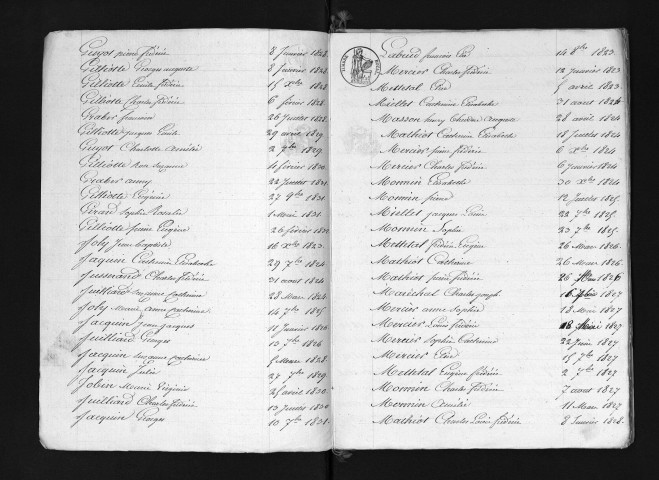 Guyot pierre frédéric 8 Janvier 1828.
Gilliotte Georges auguste 8 Janvier 1828.
Gilliotte Emile frédéric 15 Xbre 1828.
Gilliotte Charles frédéric 6 février 1828.
Graber 26 Juillet 1828.
Gilliotte Jacques Emile 29 avril 1829.
Guyot Charlotte Amélie 2 9bre 1829.
Gilliotte Suzanne 4 février 1830.
Graber anny 22 Juillet 1831.
Gilliotte Eugénie 27 9bre 1831.
Girard Sophie Rosalie 1 Mai 1831.
Gilliotte pierre Eugène 26 février 1832.
Joly Jean baptiste 16 Xbre 1823.
Jaquin Catherine Elisabeth 29 7bre 1824.
Jussiaud Charles frédéric 31 aout 1824.
Juilliard Suzanne Catherine 28 Mars 1824.
Joly Marie Anne Catherine 14 7bre 1825.
Jacquin Jean Jacques 11 Janvier 1826.
Juilliard Georges 10 7bre 1826.
Jacquin Suzanne Catherine 5 Mars 1828.
Jacquin Julie 27 7bre 1829.
Jobin Marie Virginie 25 avril 1830.
Juilliard Charles frédéric 13 Juillet 1830.
Jacquin Georges 10 7bre 1831.
Labeud francois 14 8bre 1823.
Mercier Charles frédéric 12 Janvier 1823.
Mettetal Elise 5 avril 1823.
Miellet Catherine Elisabeth 31 aout 1824.
Masson henry Théodore Auguste 28 avril 1824.
Mathiot Catherine Elisabeth 18 Juillet 1824.
Mercier pierre frédéric 6 Xbre 1824.
Mercier Charles frédéric 6 Janvier 1824.
Monnin Elisabeth 30 Xbre 1824.
Monnin pierre 12 Juillet 1825.
Miellet Jacques Louis 22 7bre 1825.
Monnin Sophie 23 7bre 1825.
Mettetal frédéric Eugène 26 Mars 1826.
Mathiot Catherine 26 Mars 1826.
Mathiot pierre frédéric 26 1826.
Maréchal Charles Joseph 16 1827.
Mercier anne Sophie 18 Mars 1827.
Mercier Louis frédéric 18 Mai 1827.
Mercier Sophie Catherine 22 Juin 1827.
Mercier Elise 15 7bre 1827.
Mettetal Eugène frédéric 2 7bre 1827.
Monnin Charles frédéric 7 aout 1827.
Monnin Amélie 11 Mars 1827.
Mathiot Charles Louis frédéric 8 Janvier 1828.